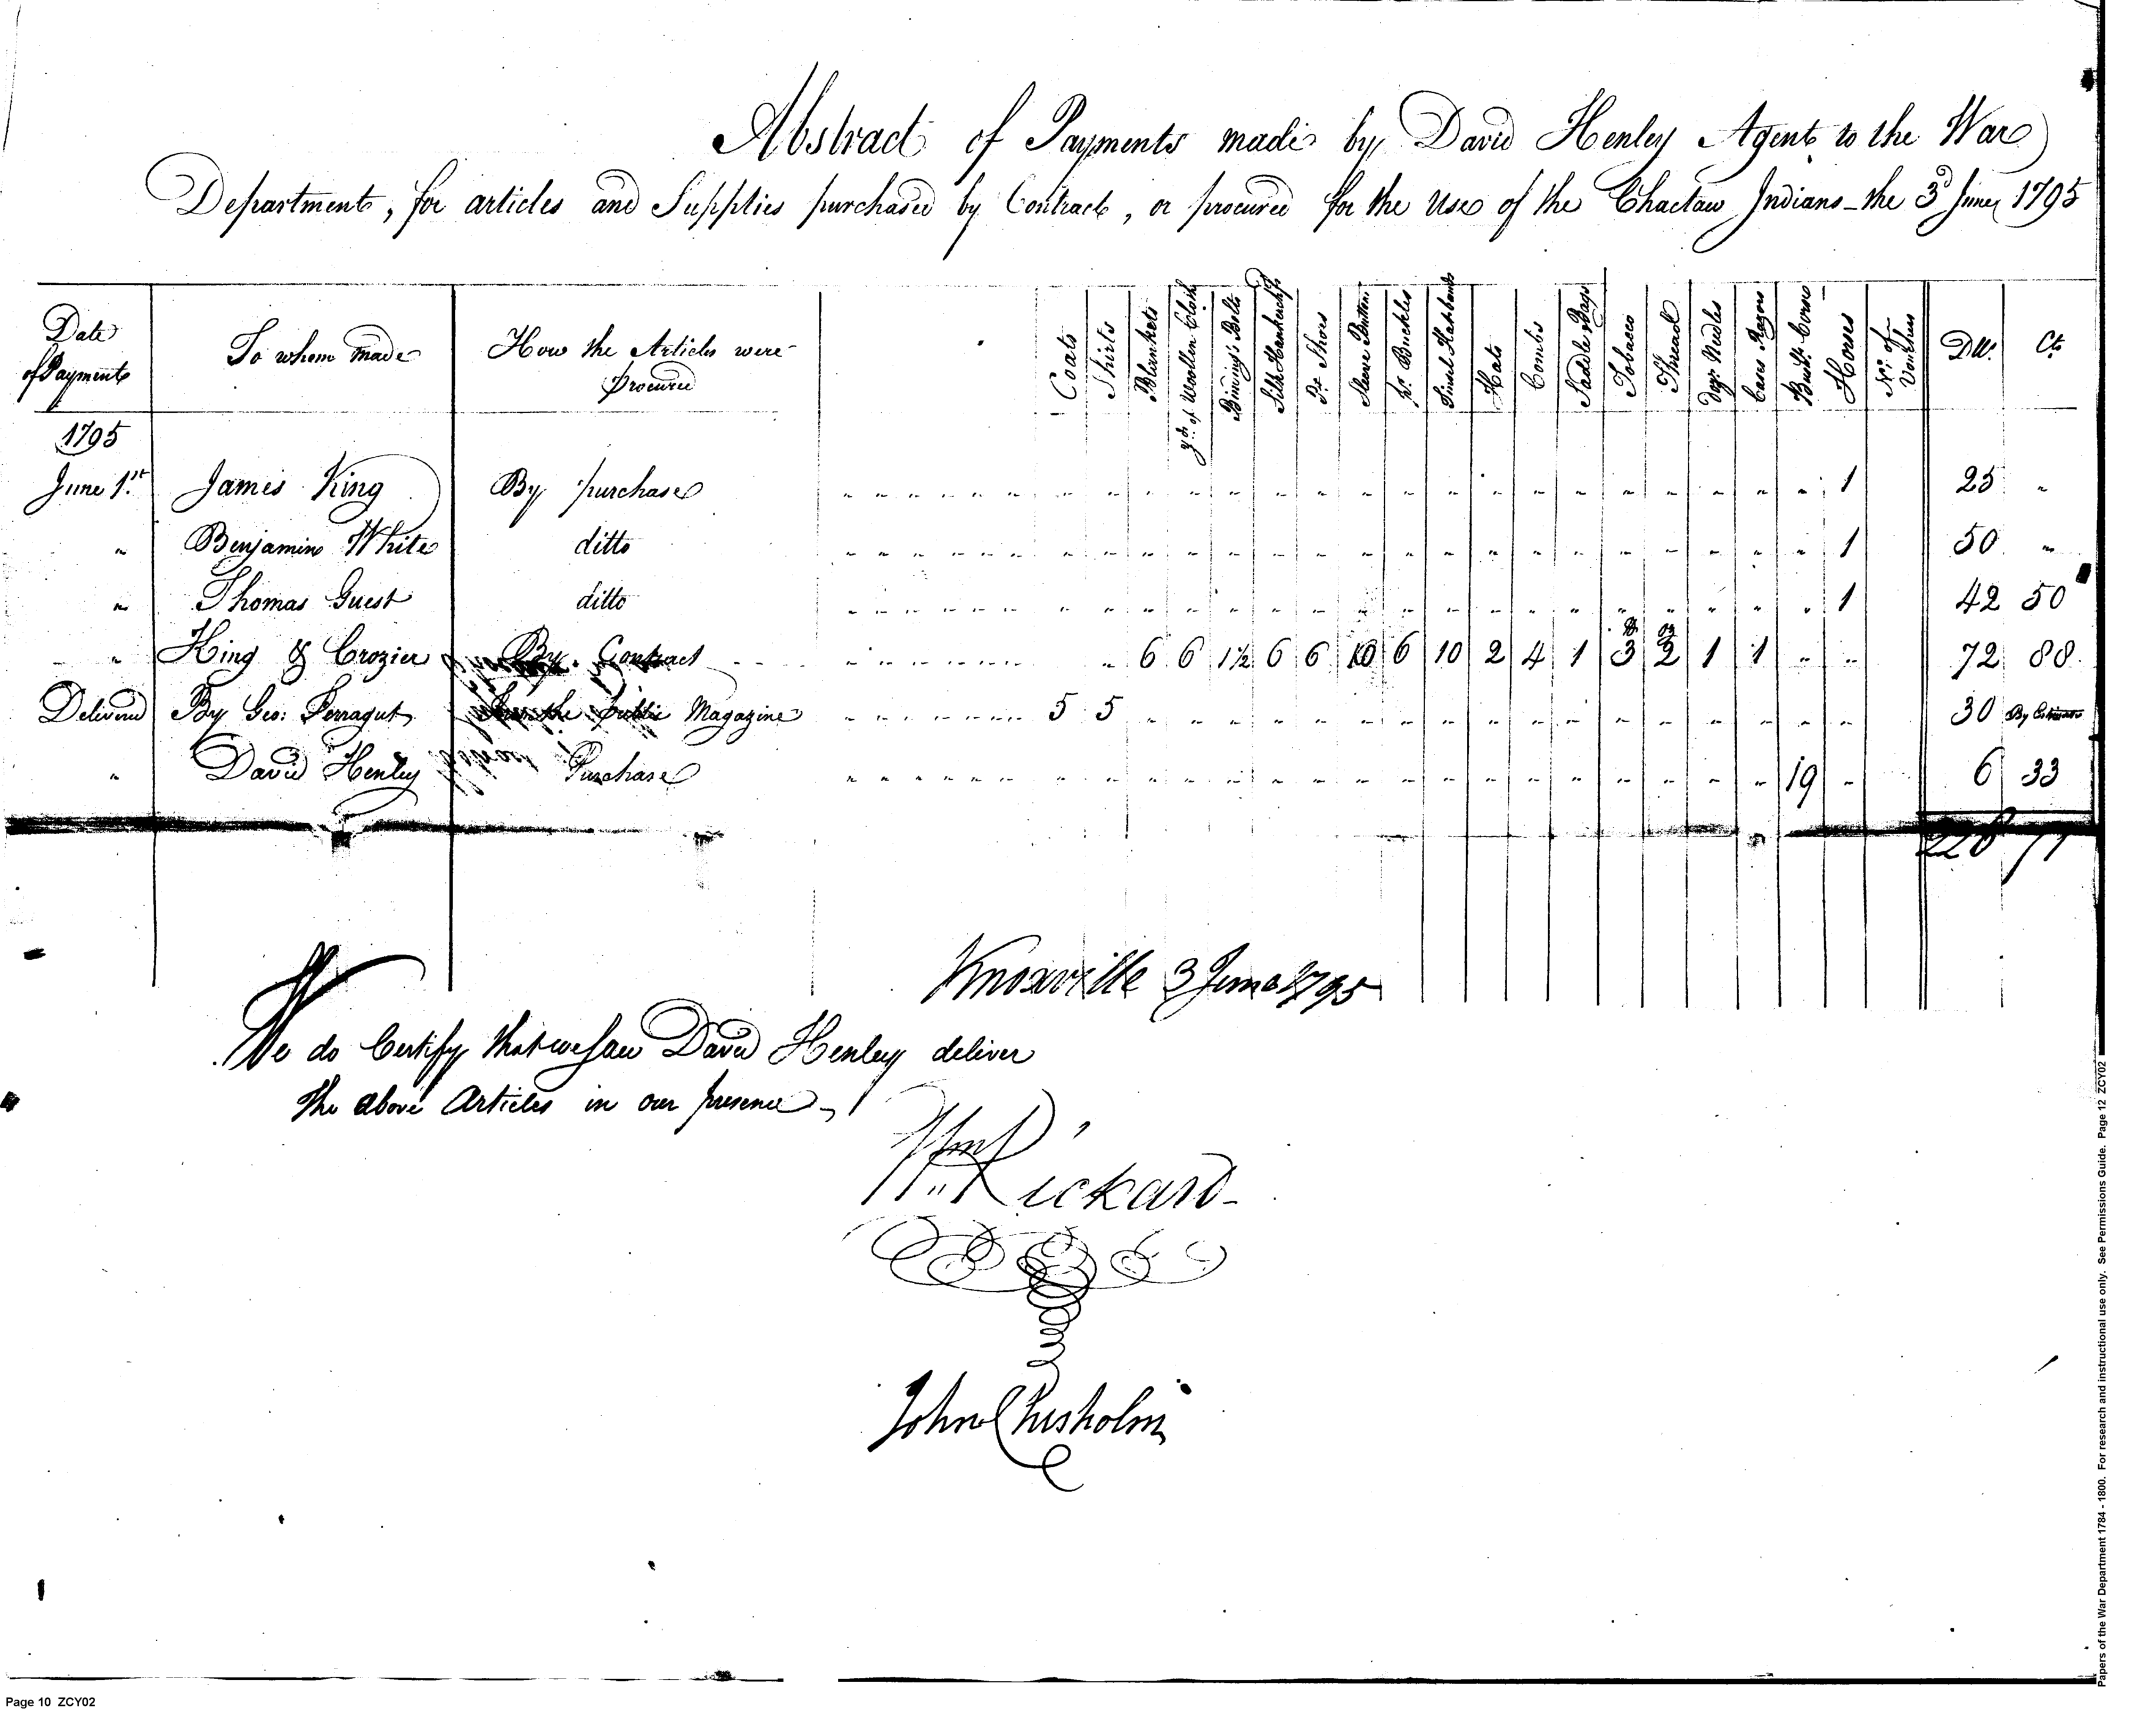 Abstract of Payments made by David Henley Agent to the War
Department, for articles and Supplies purchased by Contract, or procured for the Use of the Chactaw Indians _ the 3d June 1795
Date of Payments | To whom made | How the Articles were procured | Coats | Shirts | Blankets | yds. of Woollen Cloth | Bindings Bolts | Silk Handkerchfs | Pr. Shoes | Sleeve Buttons | pr. Buckles | Tinsel Hatbands | Hats | Combs | Saddle Bags | Tobacco | Thread | doz. Needles | Cases Razors | Bushs. Corn | Horses | No. of Vouchers | Dlls. | Cts
1795
June 1st James King By purchase 1 25 "
" Benjamin White ditto 1 50 "
" Thomas Guest ditto 1 42 50
" King & Crozier By Contract 6 6 1½ 6 6 10 6 10 2 4 1 3 lb 2 oz 1 1 72 88
Delivered By Geo: Ferragut public Magazine 5 5 30 By Estimate
" David Henley Purchase 19 6 33
226 71
Knoxville 3 June 1795
We do Certify that we saw David Henley deliver
the above Articles in our presence _
Wm Rickard
John Chisholm
Page 10 ZCY02
Papers of the War Department 1784 - 1800. For research and instructional use only. See Permissions Guide. Page 12 ZCY02